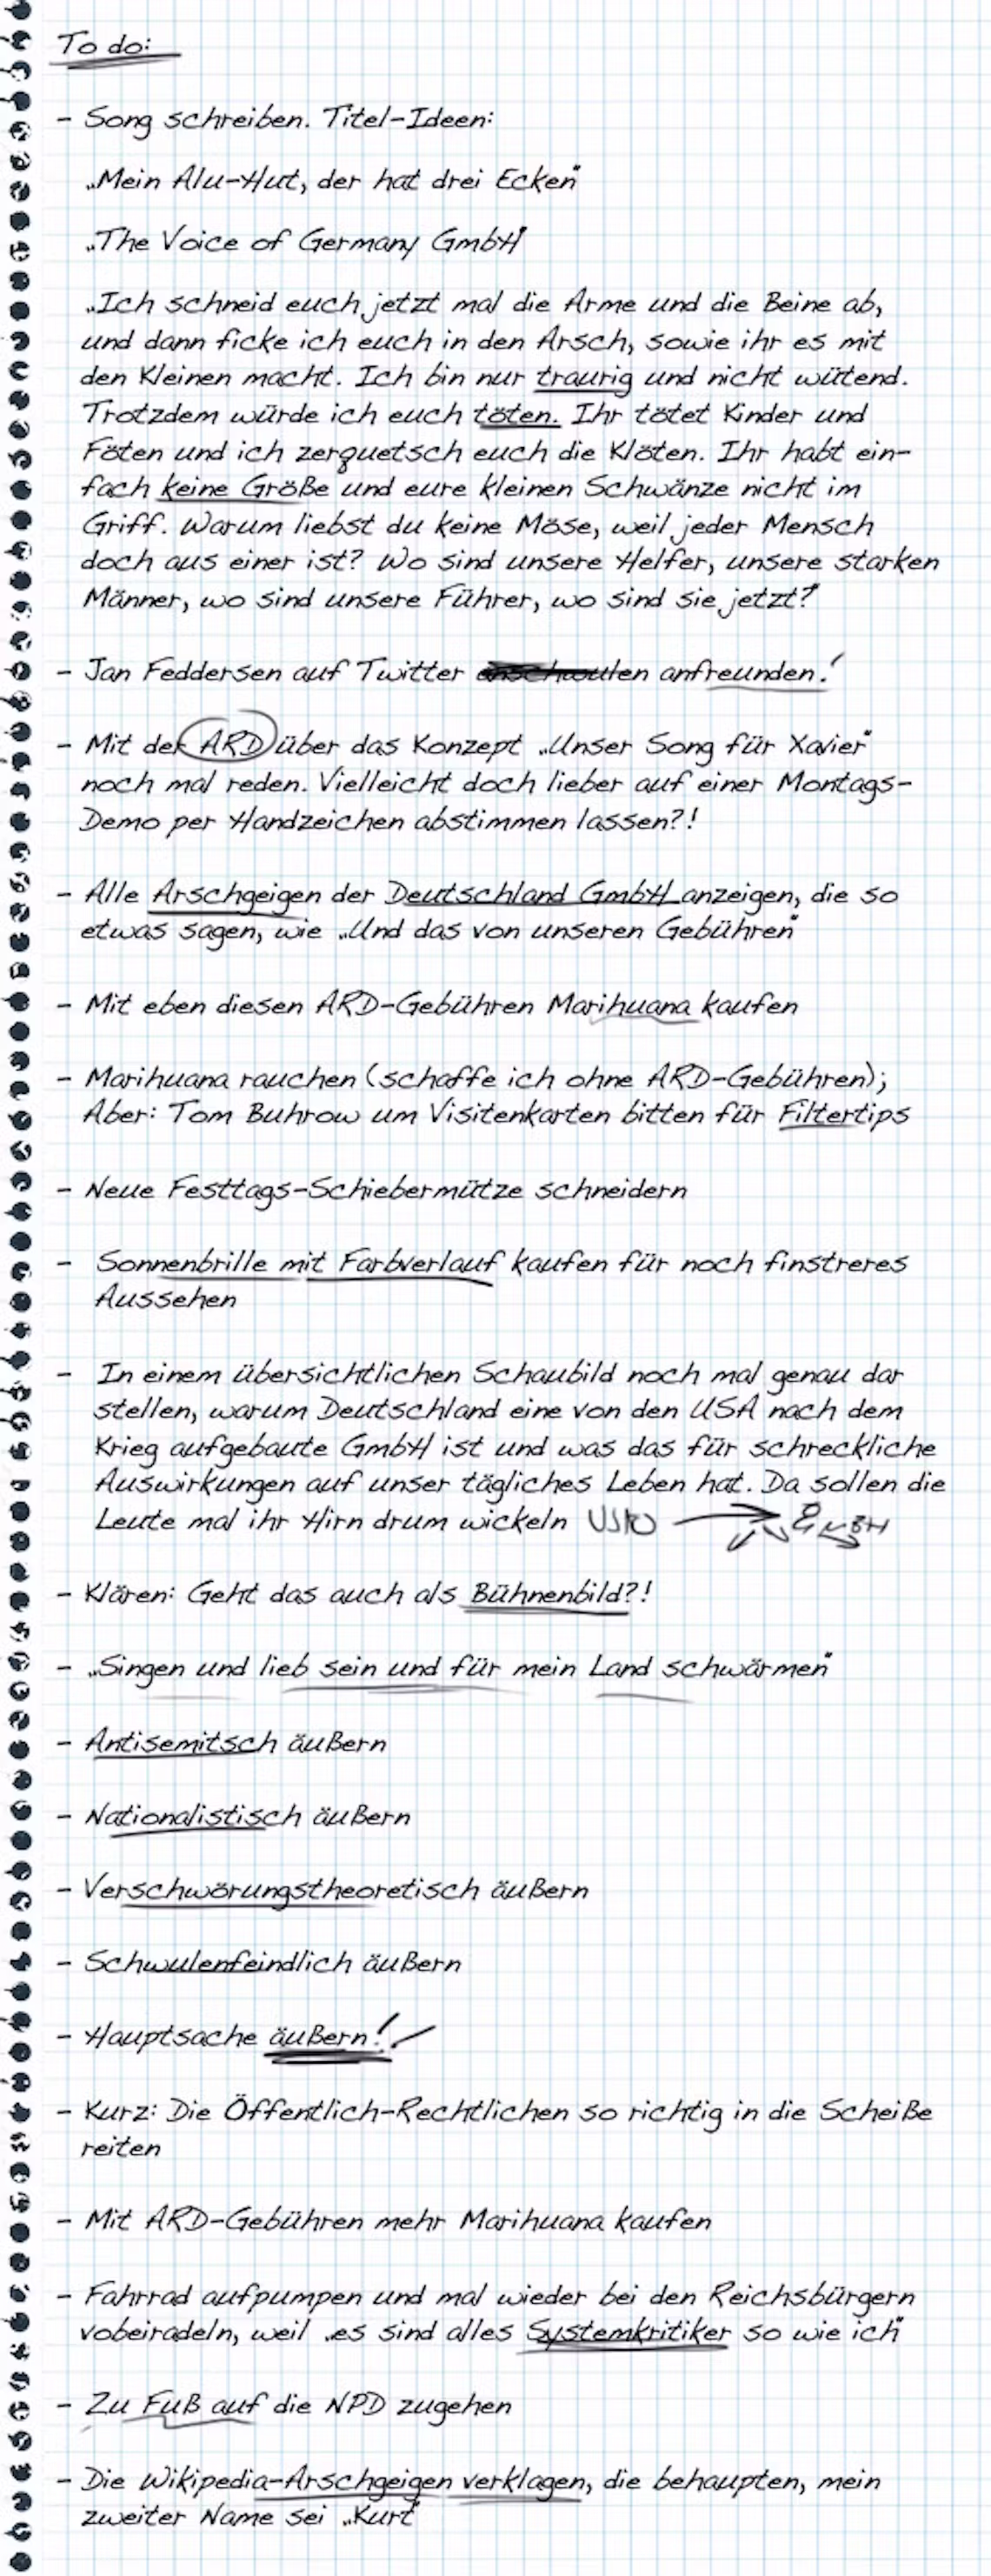 To do:
- Song schreiben. Titel-Ideen:
„Mein Alu-Hut, der hat drei Ecken"
„The Voice of Germany GmbH"
„Ich schneid euch jetzt mal die Arme und die Beine ab,
und dann ficke ich euch in den Arsch, sowie ihr es mit
den Kleinen macht. Ich bin nur traurig und nicht wütend.
Trotzdem würde ich euch töten. Ihr tötet Kinder und
Föten und ich zerquetsch euch die Klöten. Ihr habt ein-
fach keine Größe und eure kleinen Schwänze nicht im
Griff. Warum liebst du keine Möse, weil jeder Mensch
doch aus einer ist? Wo sind unsere Helfer, unsere starken
Männer, wo sind unsere Führer, wo sind sie jetzt?"
- Jan Feddersen auf Twitter anfreunden!
- Mit der ARD über das Konzept „Unser Song für Xavier"
noch mal reden. Vielleicht doch lieber auf einer Montags-
Demo per Handzeichen abstimmen lassen?!
- Alle Arschgeigen der Deutschland GmbH anzeigen, die so
etwas sagen, wie „Und das von unseren Gebühren"
- Mit eben diesen ARD-Gebühren Marihuana kaufen
- Marihuana rauchen (schaffe ich ohne ARD-Gebühren);
Aber: Tom Buhrow um Visitenkarten bitten für Filtertips
- Neue Festtags-Schiebermütze schneidern
- Sonnenbrille mit Farbverlauf kaufen für noch finstreres
Aussehen
- In einem übersichtlichen Schaubild noch mal genau dar
stellen, warum Deutschland eine von den USA nach dem
Krieg aufgebaute GmbH ist und was das für schreckliche
Auswirkungen auf unser tägliches Leben hat. Da sollen die
Leute mal ihr Hirn drum wickeln
- Klären: Geht das auch als Bühnenbild?!
- „Singen und lieb sein und für mein Land schwärmen"
- Antisemitsch äußern
- Nationalistisch äußern
- Verschwörungstheoretisch äußern
- Schwulenfeindlich äußern
- Hauptsache äußern!
- Kurz: Die Öffentlich-Rechtlichen so richtig in die Scheiße
reiten
- Mit ARD-Gebühren mehr Marihuana kaufen
- Fahrrad aufpumpen und mal wieder bei den Reichsbürgern
vobeiradeln, weil „es sind alles Systemkritiker so wie ich"
- Zu Fuß auf die NPD zugehen
- Die Wikipedia-Arschgeigen verklagen, die behaupten, mein
zweiter Name sei „Kurt"